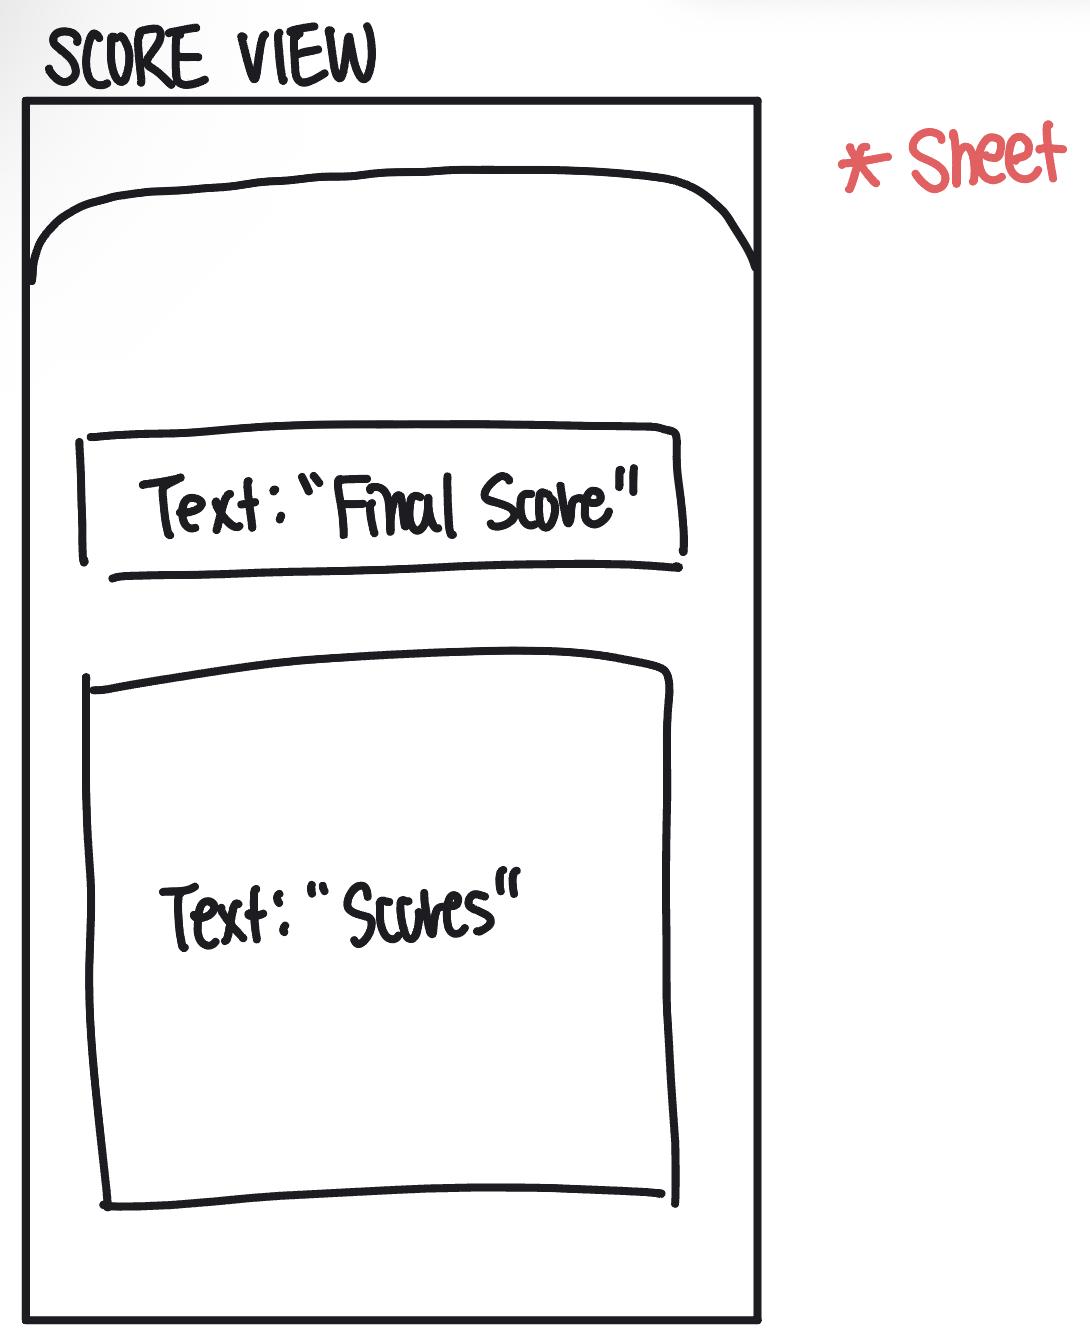 SCORE VIEW
* Sheet
Text: "Final Score"
Text: "Scores"